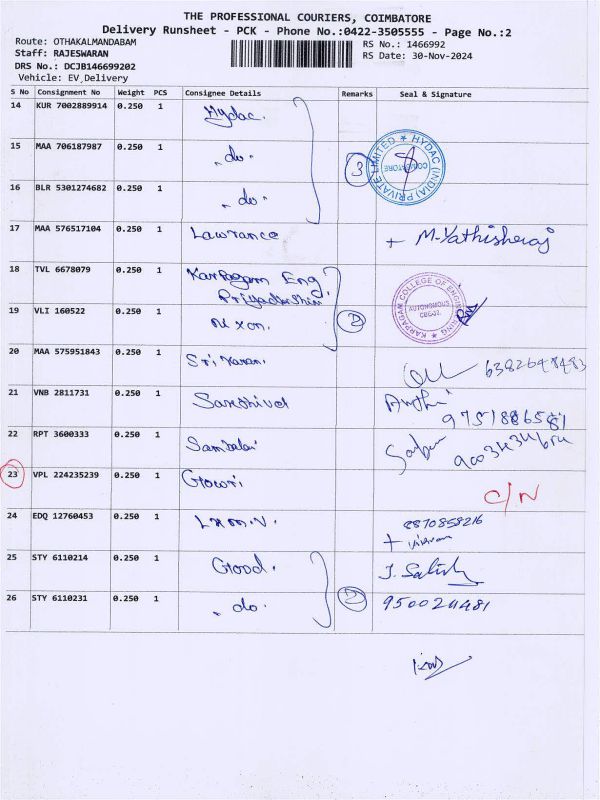 THE PROFESSIONAL COURIERS, COIMBATORE
Delivery Runsheet - PCK - Phone No.:0422-3505555 - Page No.:2
Route: OTHAKALMANDABAM
RS No.: 1466992
Staff: RAJESWARAN
RS Date: 30-Nov-2024
DRS No.: DCJB146699202
Vehicle: EV,Delivery
S No Consignment No Weight PCS Consignee Details Remarks Seal & Signature
14 KUR 7002889914 0.250 1 Hydac.
15 MAA 706187987 0.250 1 "do"
3 HYDAC (INDIA) PRIVATE LIMITED ★ COIMBATORE
16 BLR 5301274682 0.250 1 "do"
17 MAA 576517104 0.250 1 Lawrance + M-Yathisheraj
18 TVL 6678079 0.250 1 Karpagam Eng
Priyadarshini
2 KARPAGAM COLLEGE OF ENGINEERING AUTONOMOUS
19 VLI 160522 0.250 1 Nixon.
20 MAA 575951843 0.250 1 Sri Karan. 6382648483
21 VNB 2811731 0.250 1 Sakthivel
9751886581
22 RPT 3600333 0.250 1
23 VPL 224235239 0.250 1 Gowri. C/N
24 EDQ 12760453 0.250 1 L x m. N. 8870858216
25 STY 6110214 0.250 1 Good. J. Satish
26 STY 6110231 0.250 1 "do" 2